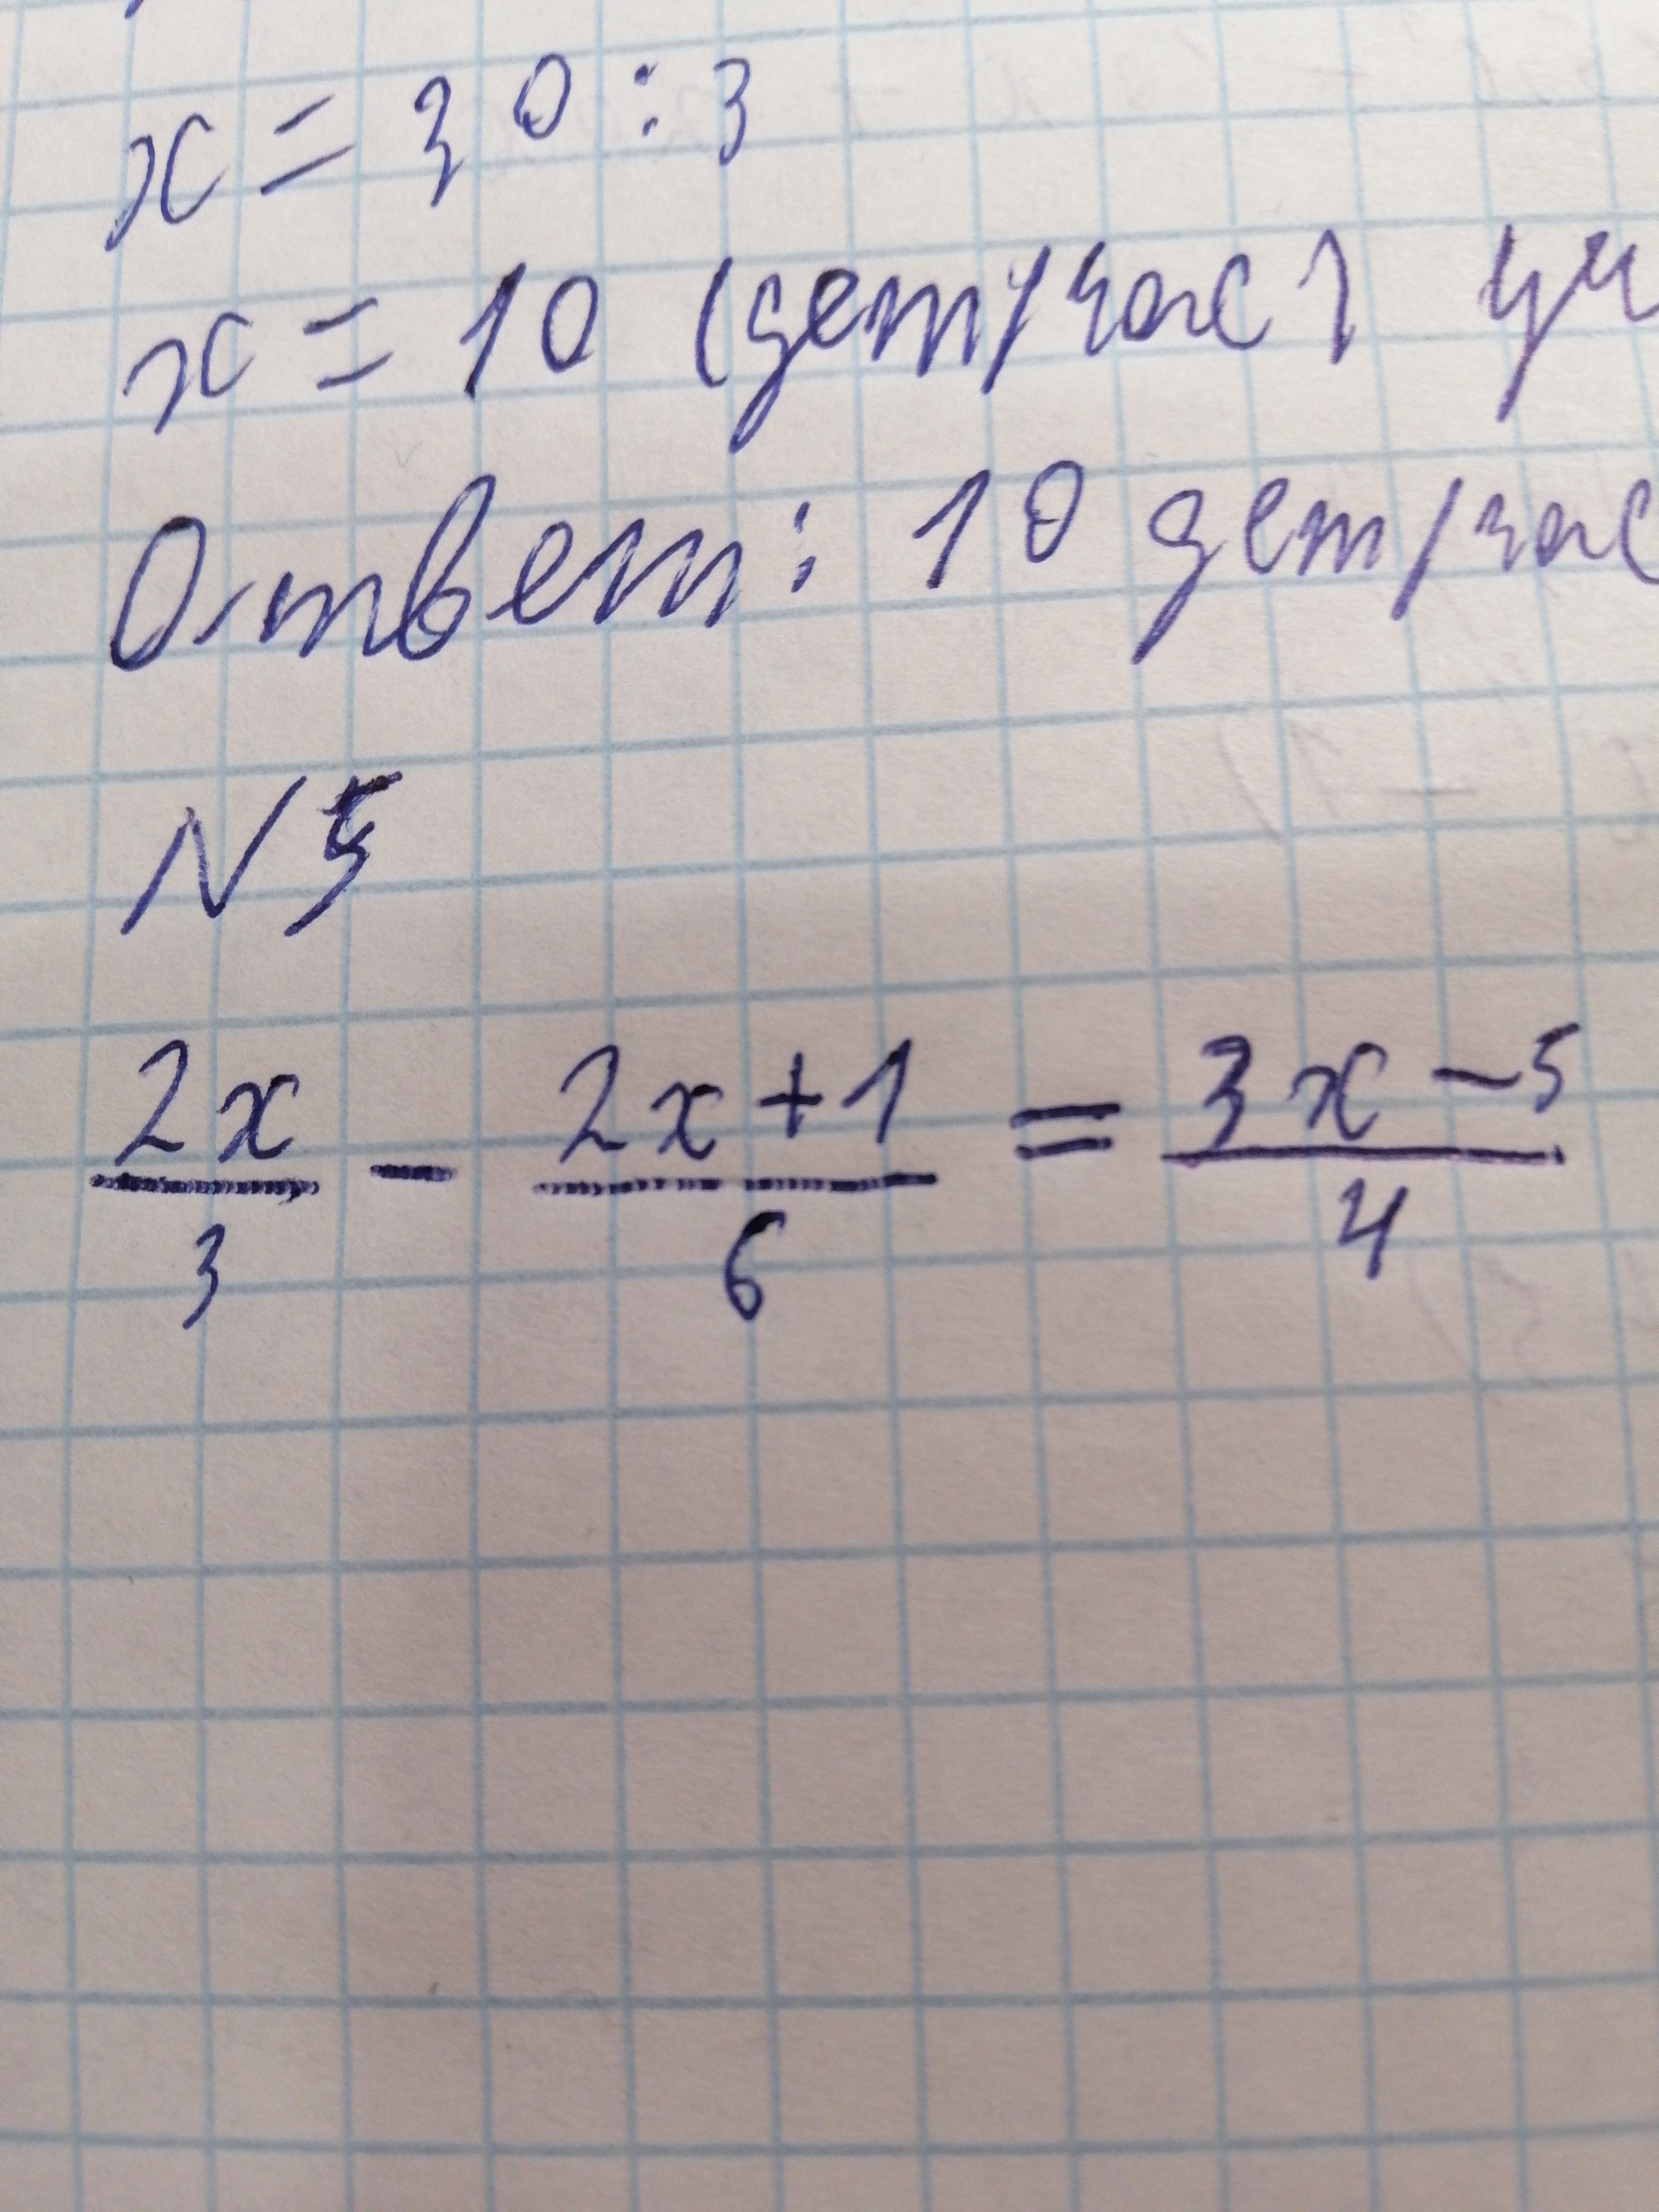 x = 30 : 3
x = 10 (дет/час) уч
Ответ: 10 дет/час
N5
2x/3 - 2x+1/6 = 3x-5/4